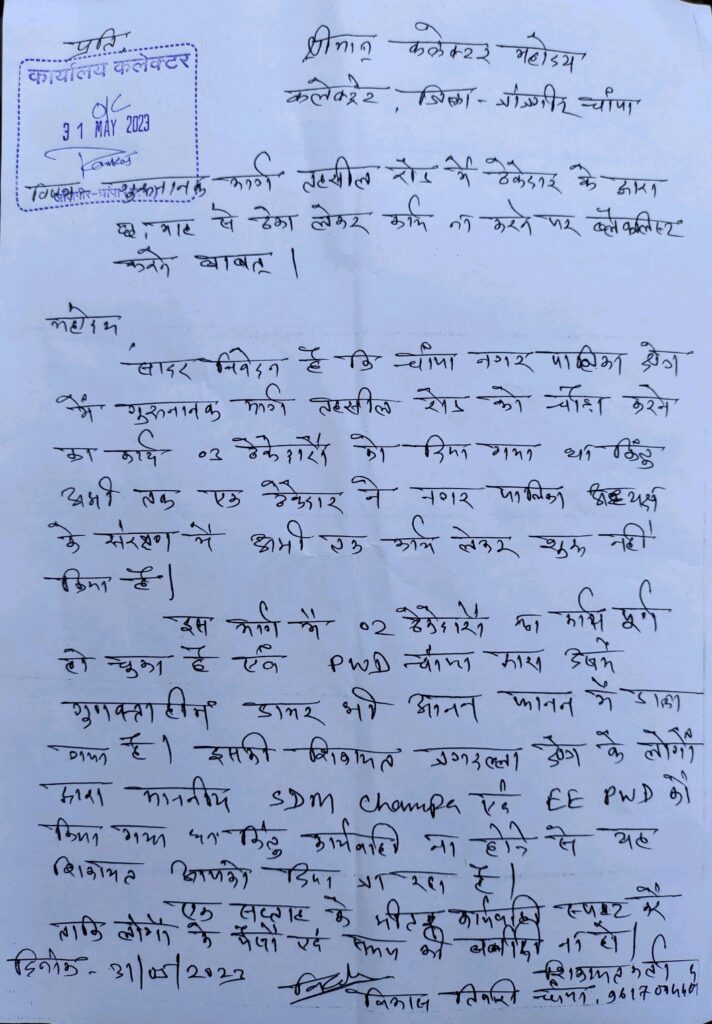 प्रति,
श्रीमान् कलेक्टर महोदय
कलेक्टरेट, जिला - जांजगीर चांपा
कार्यालय कलेक्टर
31 MAY 2023
विषय गुरुनानक मार्ग तहसील रोड में ठेकेदार के द्वारा
छः माह से ठेका लेकर कार्य ना करने पर ब्लैकलिस्ट
करने बाबत् ।
महोदय
सादर निवेदन है कि चांपा नगर पालिका क्षेत्र
में गुरुनानक मार्ग तहसील रोड को चौड़ा करने
का कार्य 03 ठेकेदारों को दिया गया था किंतु
अभी तक एक ठेकेदार ने नगर पालिका अध्यक्ष
के संरक्षण में अभी तक कार्य लेकर शुरू नहीं
किया है।
इस मार्ग में 02 ठेकेदारों का कार्य पूर्ण
हो चुका है एवं PWD चांपा द्वारा इसमें
गुणवत्ताहीन डामर भी आनन फानन में डाला
गया है। इसकी शिकायत जगदल्ला क्षेत्र के लोगों
द्वारा माननीय SDM Champa एवं EE PWD को
किया गया था किंतु कार्यवाही ना होने से यह
शिकायत आपको किया जा रहा है।
एक सप्ताह के भीतर कार्यवाही स्पष्ट करें
ताकि लोगों के पैसों एवं समय की बर्बादी ना हो।
दिनांक - 31/05/2023
शिकायतकर्ता
विकास तिवारी चांपा,